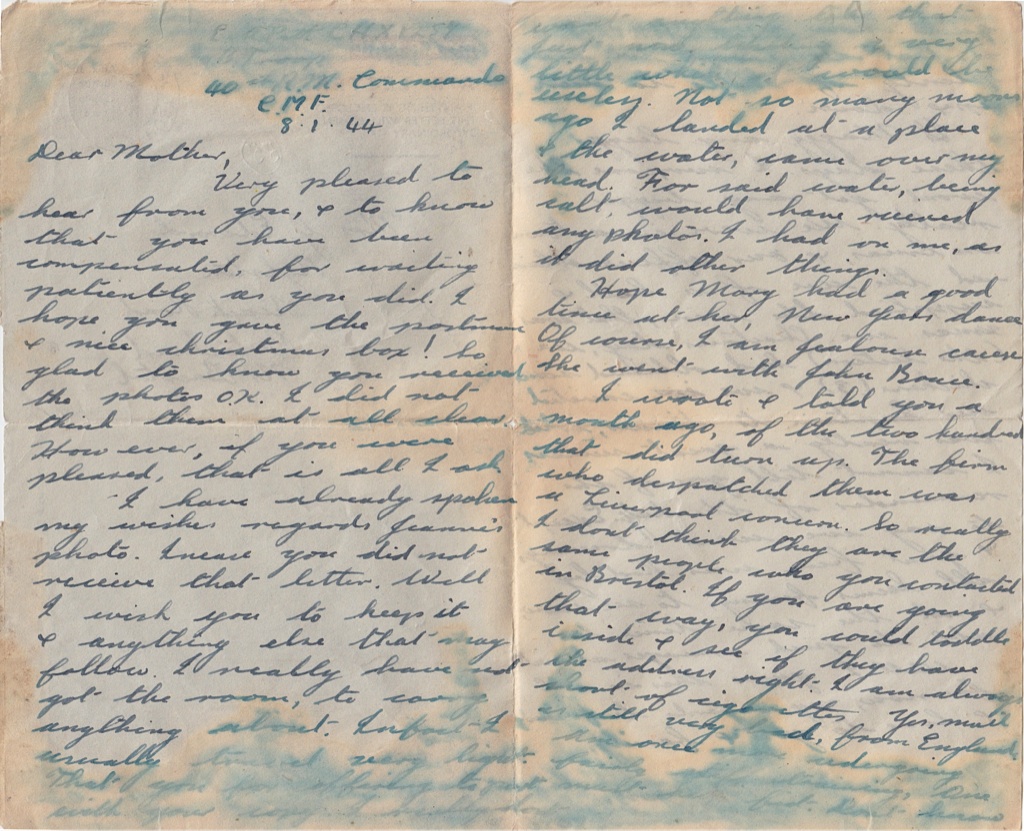 40 R.M. Commando
C.M.F.
8.1.44
Dear Mother,
Very pleased to
hear from you, & to know
that you have been
compensated, for waiting
patiently as you did. I
hope you gave the postman
a nice christmas box! So
glad to know you received
the photos O.K. I did not
think them at all clear
How ever, if you were
pleased, that is all I ask
I have already spoken
my wishes regards Jeannie's
photo. Incase you did not
receive that letter. Well
I wish you to keep it
& anything else that may
follow. I really have not
got the room, to carry
anything about. Infact I
usually travel very light
That you
with your
very
little while I would be
useley. Not so many moons
ago I landed at a place
& the water, came over my
head. For said water, being
salt, would have ruined
any photos. I had on me, as
it did other things.
Hope Mary had a good
time at her, New Years dance
Of course, I am jealouse cause
She went with John Bruce.
I wrote & told you a
month ago, of the two hundred
that did turn up. The firm
who despatched them was
a Liverpool concern. So really
I dont think they are the
same people who you contacted
in Bristol. If you are going
that way, you could toddle
inside & see if they have
the address right. I am always
short of cigarettes. Yes, mail
is still very bad, from England
once
know